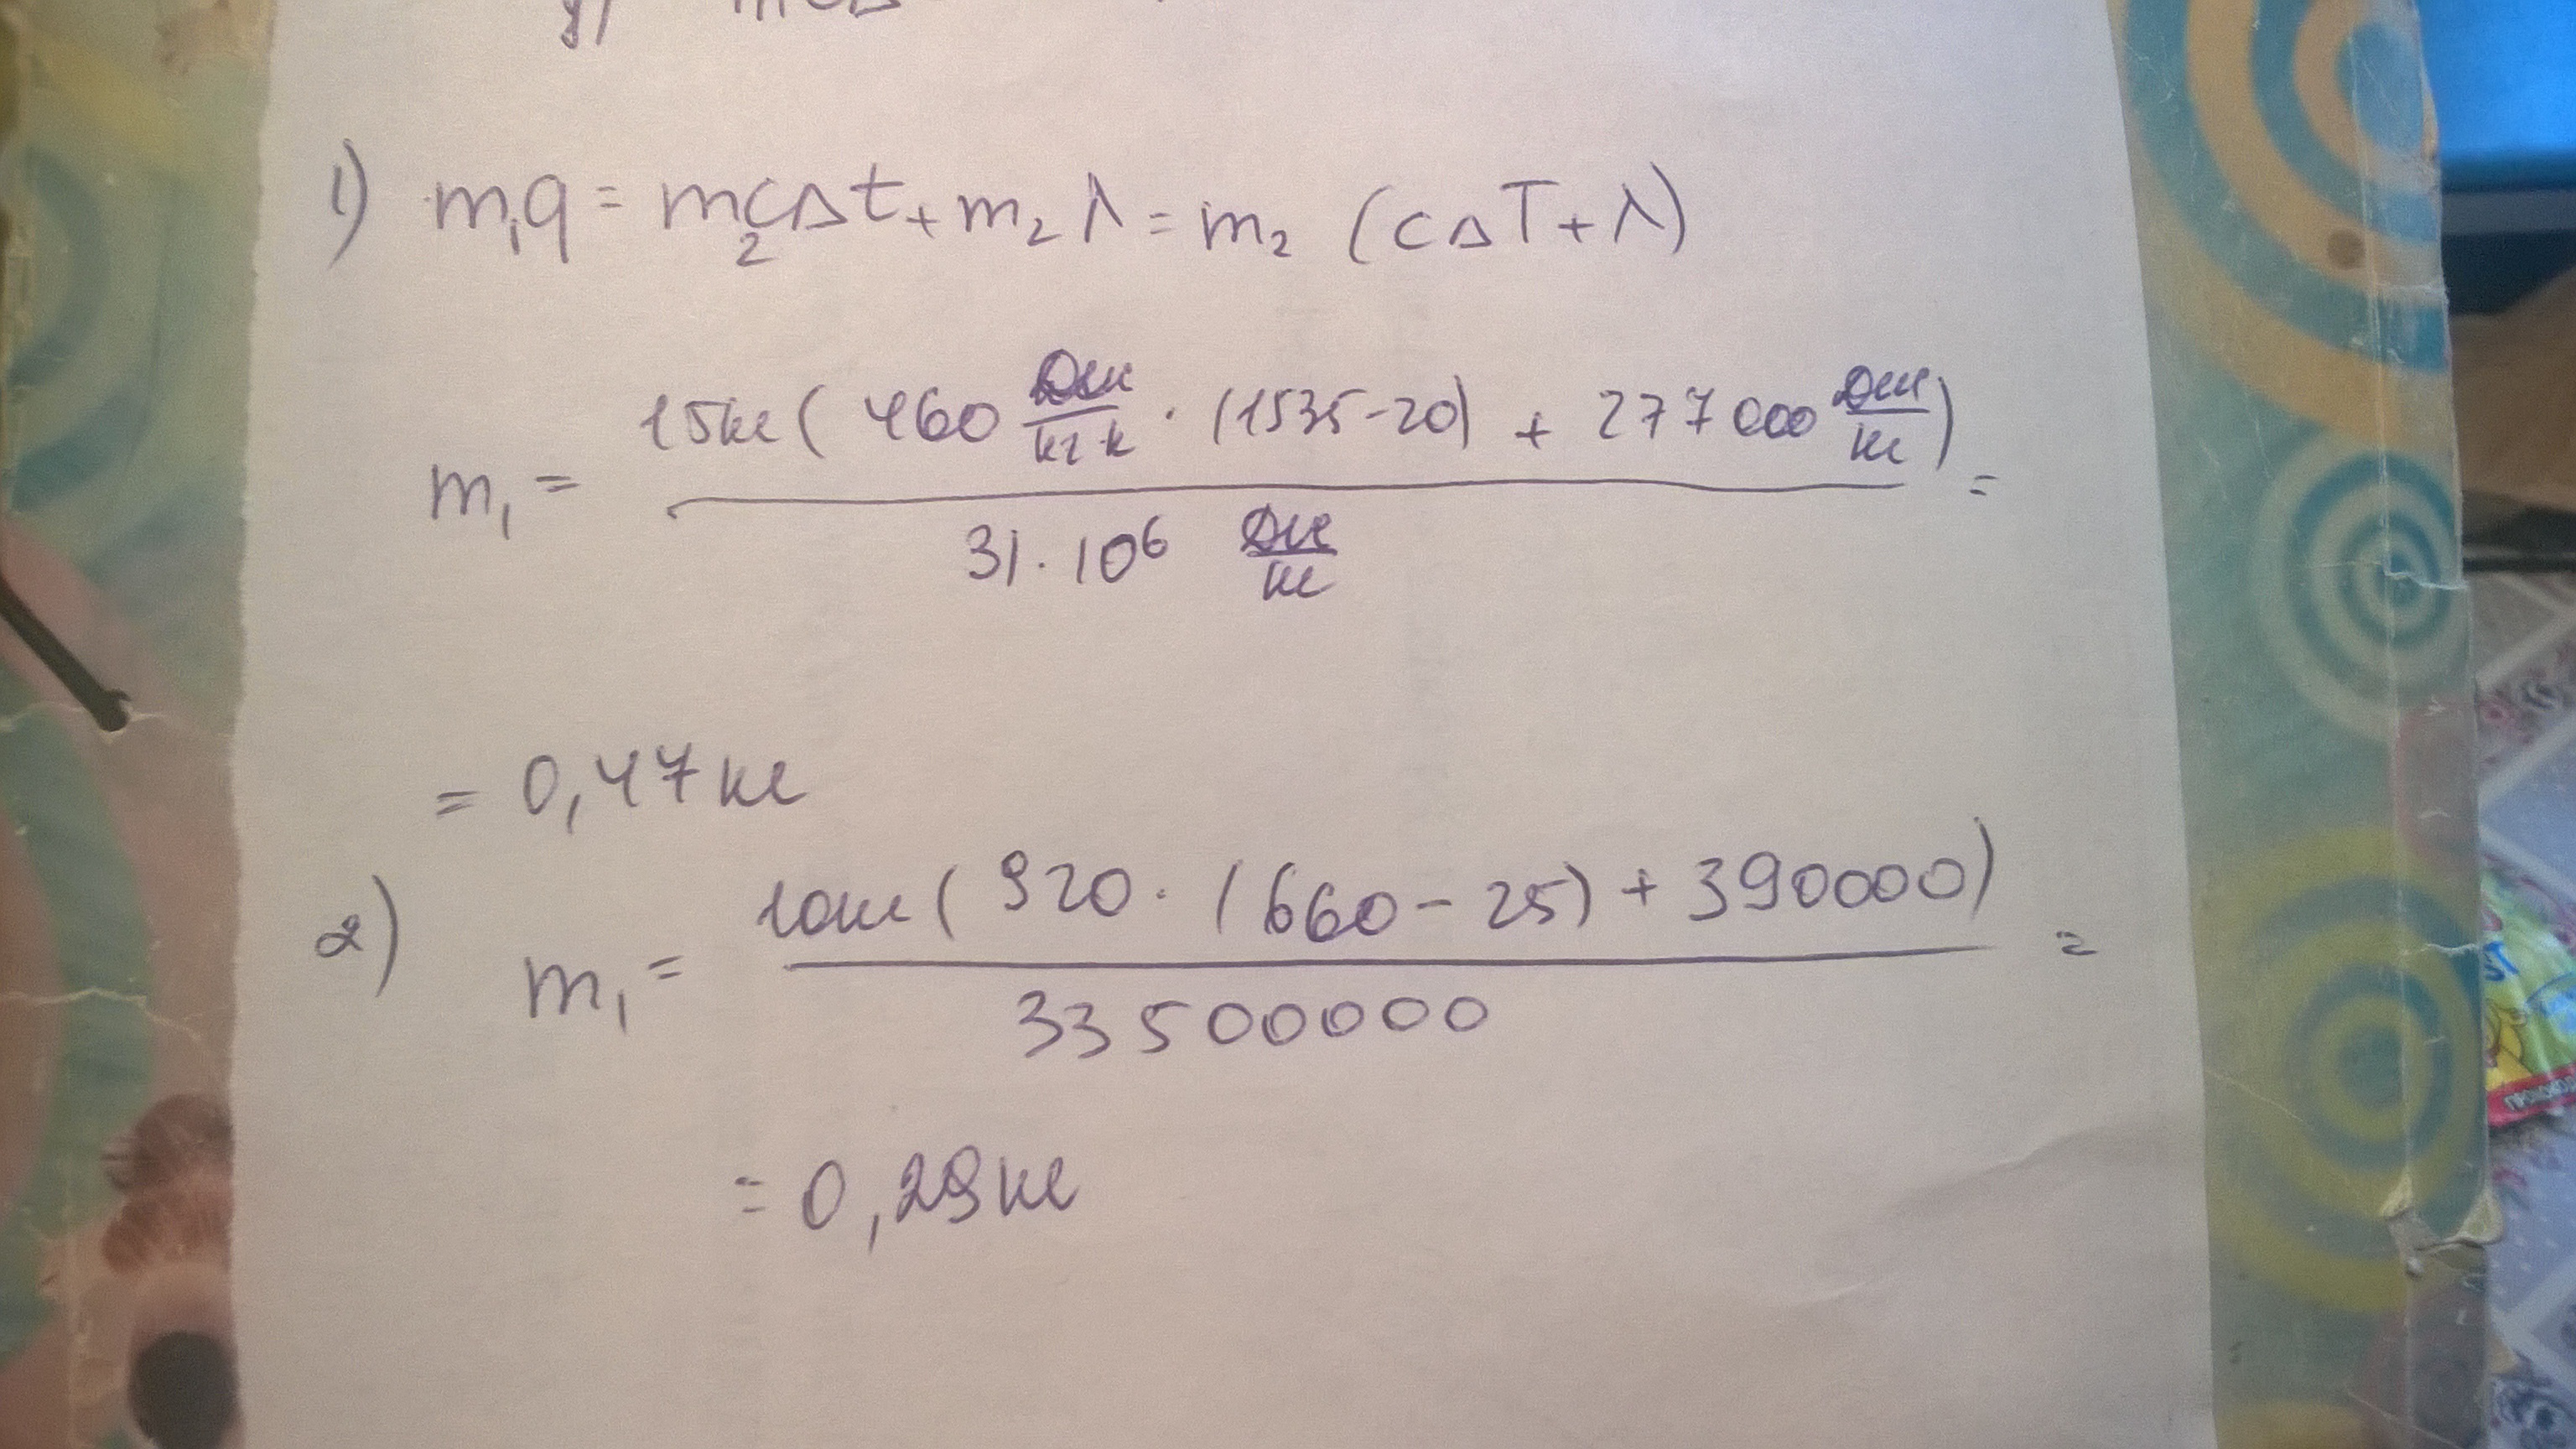 1) m₁q = m₂cΔt + m₂λ = m₂ (cΔT + λ)
m₁ = 15кг ( 460 Дж/кг К · (1535-20) + 277000 Дж/кг ) / 31·10⁶ Дж/кг =
= 0,47 кг
2) m₁ = 10кг ( 920 · (660 - 25) + 390000) / 33500000 =
= 0,29 кг